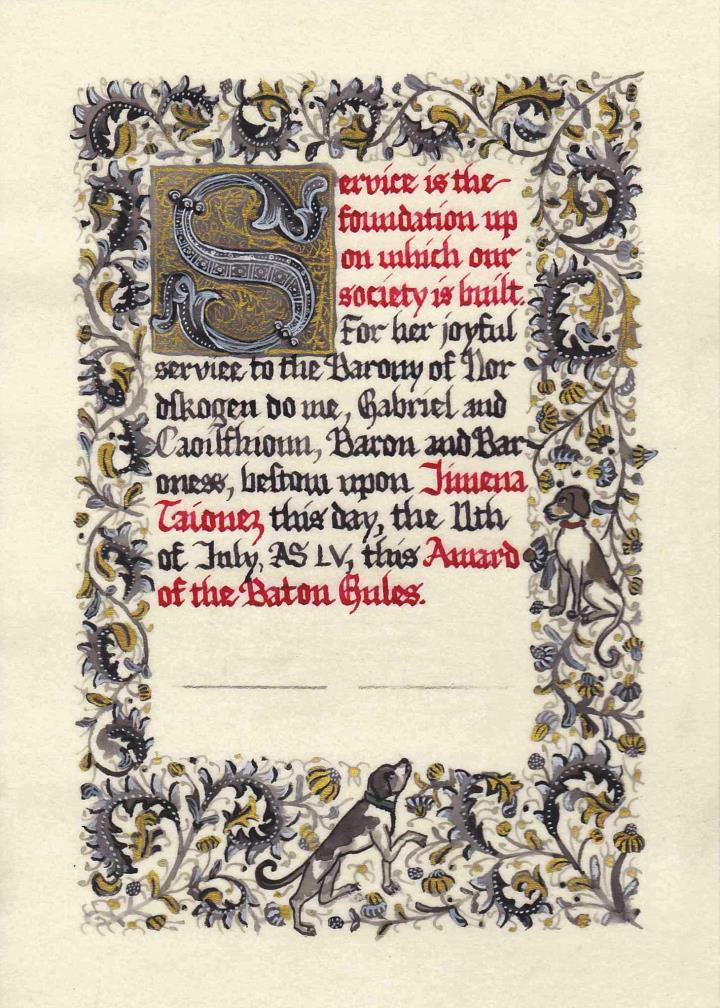 Service is the
foundation up
on which our
society is built.
For her joyful
service to the Barony of Nor
dskogen do we, Gabriel and
Caoilfhionn, Baron and Bar-
oness, bestow upon Jimena
this day, the 11th
of July, AS LV, this Award
of the Baton Gules.